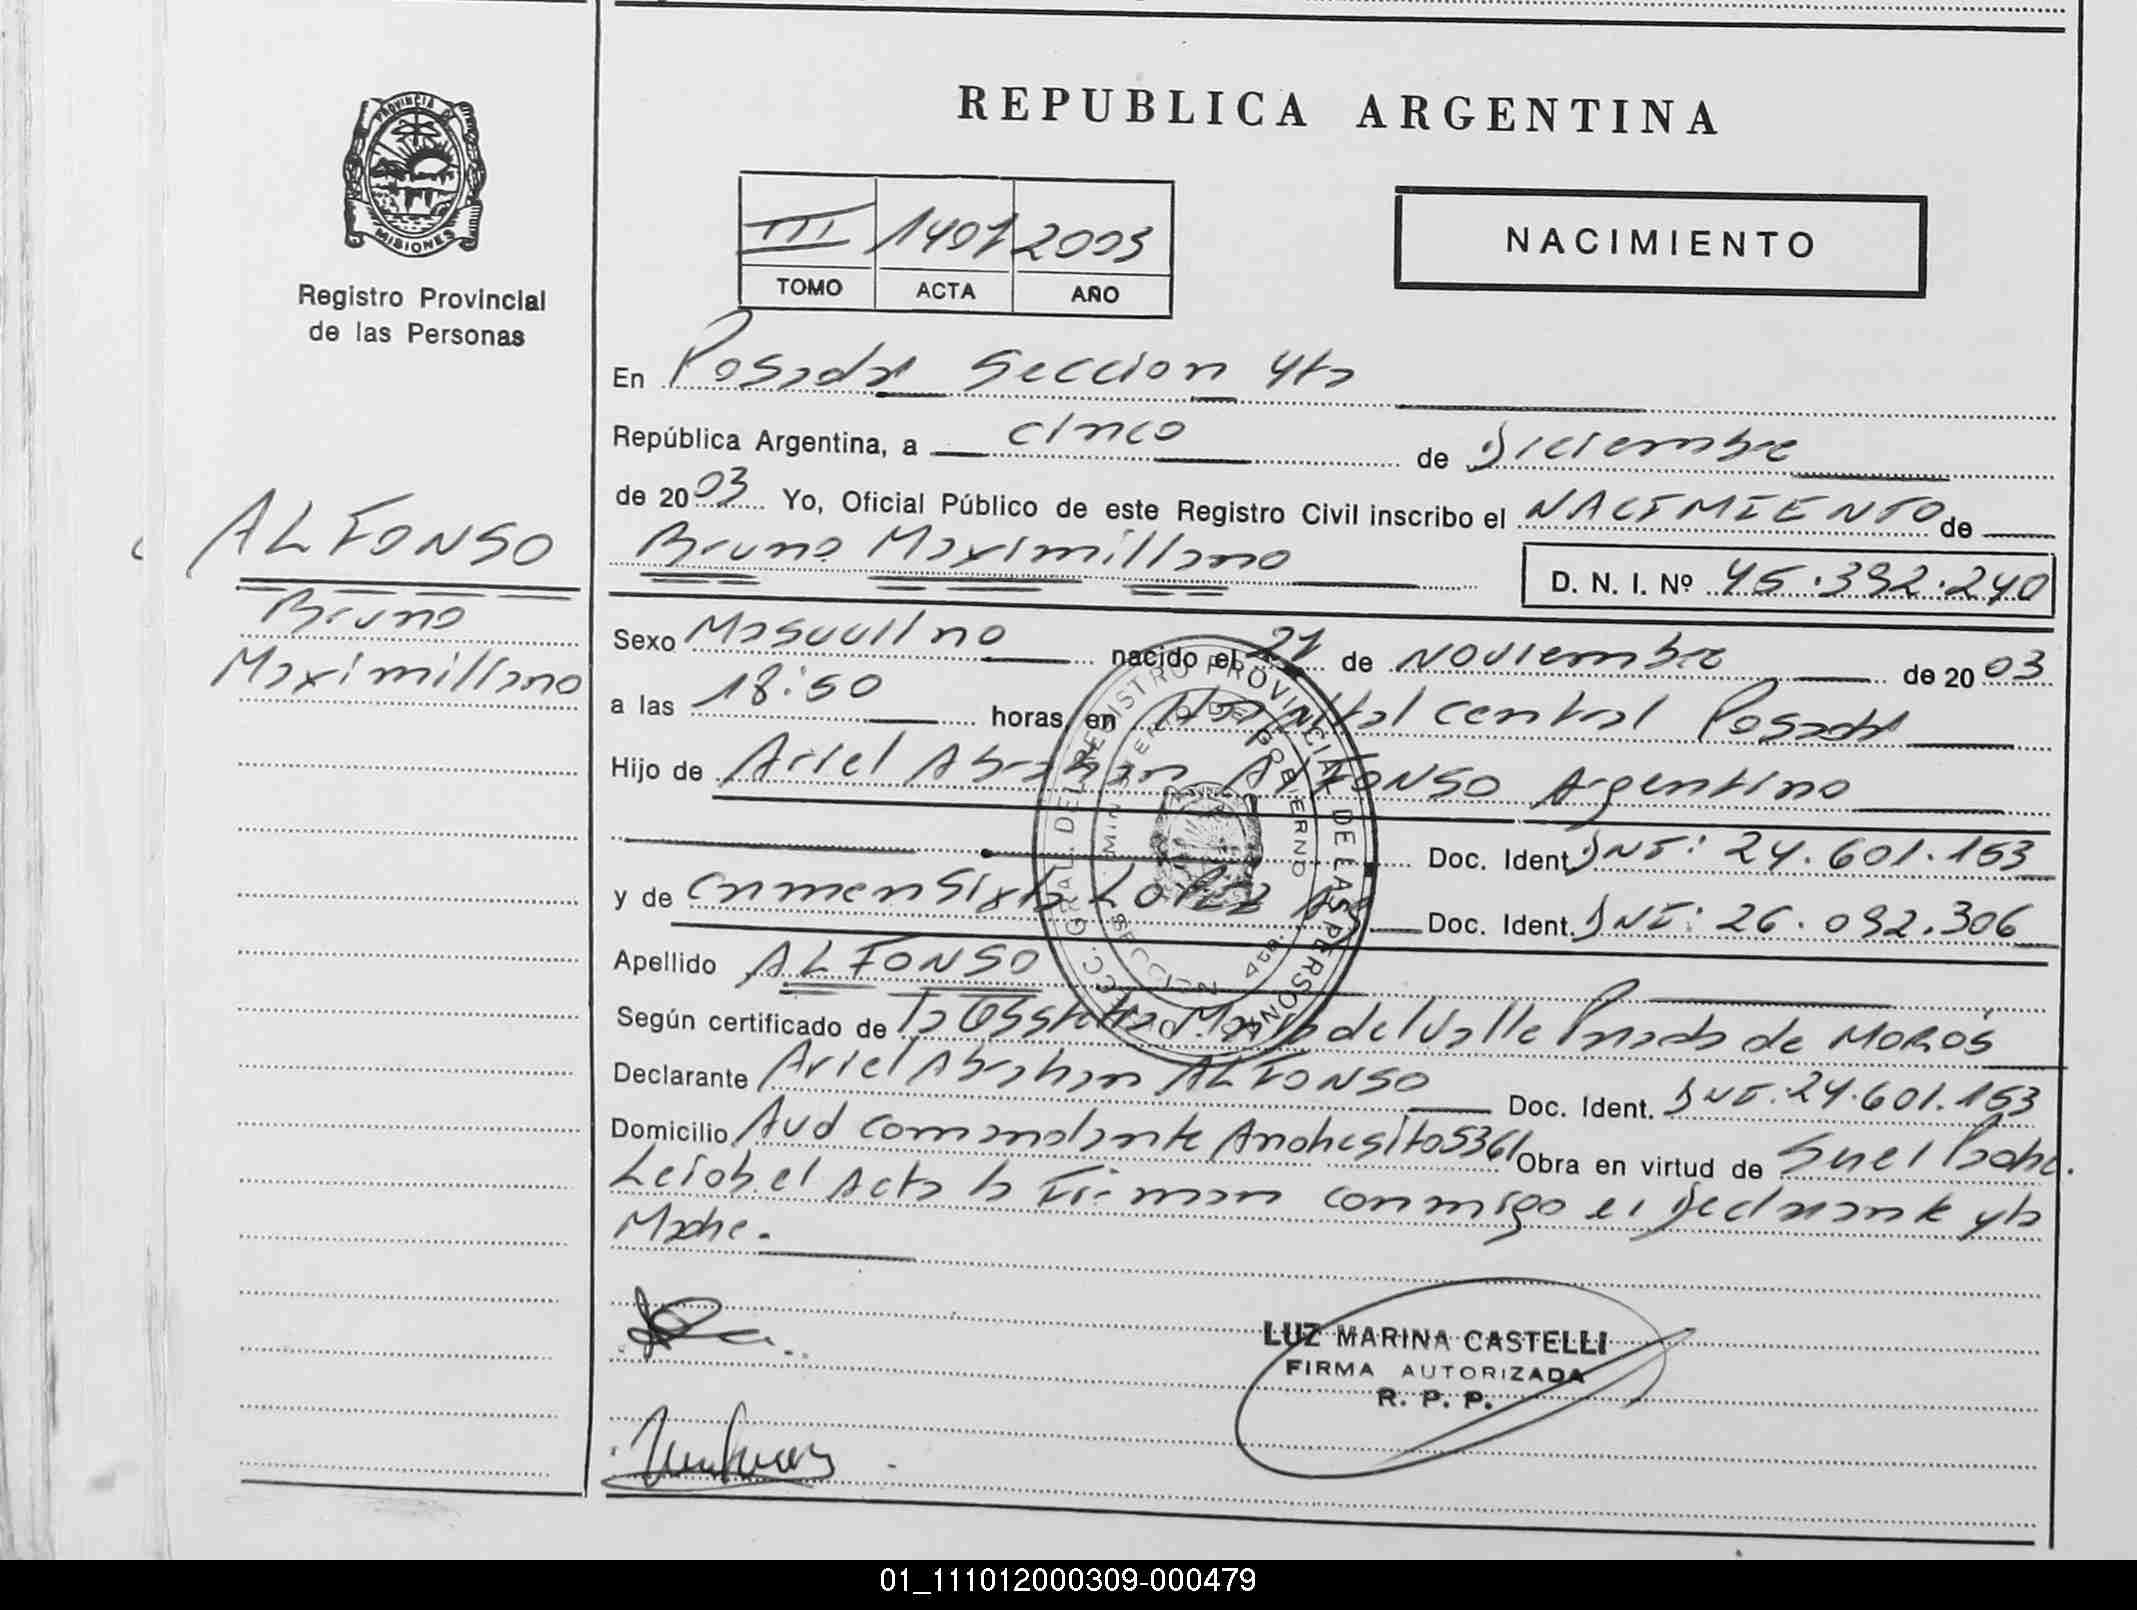 PROVINCIA DE
MISIONES
Registro Provincial
de las Personas
ALFONSO
Bruno
Maximiliano
REPUBLICA ARGENTINA
III 1491 2003
TOMO ACTA AÑO
NACIMIENTO
En Posadas Seccion 4ta
República Argentina, a cinco de Diciembre
de 2003 Yo, Oficial Público de este Registro Civil inscribo el NACIMIENTO de
Bruno Maximiliano D. N. I. Nº 45.392.240
Sexo Masculino nacido el de Noviembre de 2003
a las 18:50 horas, en Hospital central Posadas
Hijo de Ariel Abraham ALFONSO Argentino
Doc. Ident DNI: 24.601.153
y de Lopez Doc. Ident. DNI: 26.092.306
Apellido ALFONSO
Según certificado de la Maria del Valle de
Declarante Ariel Abraham ALFONSO Doc. Ident. DNI. 24.601.153
Domicilio Avd comandante Andresito 5361 Obra en virtud de Ser el Padre.
Leida el Acta la Firman conmigo el Declarante y la
Madre.
LUZ MARINA CASTELLI
FIRMA AUTORIZADA
R. P. P.
01_111012000309-000479